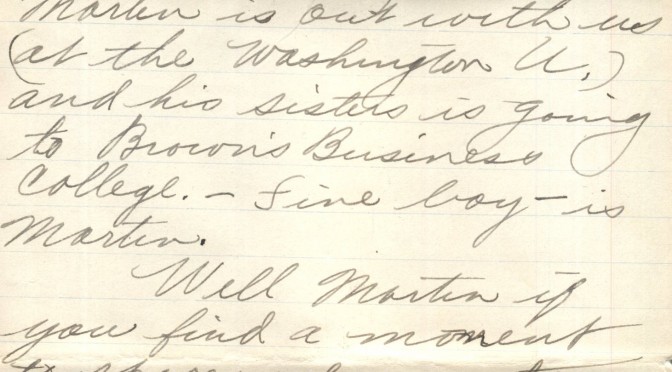 Martin is out with us
(at the Washington U.)
and his sisters is going
to Brown's Business
College. – Fine boy – is
Martin.
Well Martin if
you find a moment
to